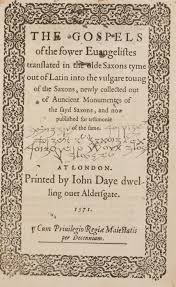 THE GOSPELS
of the fower Euangelistes
translated in the olde Saxons tyme
out of Latin into the vulgare toung
of the Saxons, newly collected out
of Auncient Monumentes of
the sayd Saxons, and now
published for testimonie
of the same.
AT LONDON.
Printed by Iohn Daye dwel-
ling ouer Aldersgate.
1571.
Cum Priuilegio Regiæ Maiestatis
per Decennium.